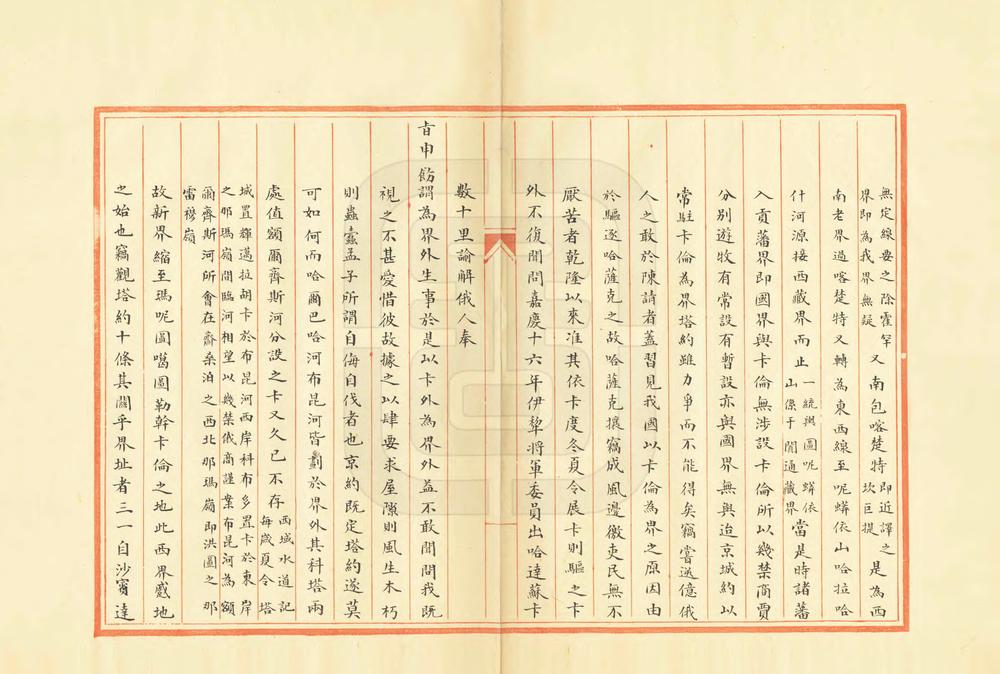 無定線要之除霍罕
界即為我界無疑
又南包喀楚特
即近譯之
坎巨提
是為西
南老界過喀楚特又轉為東西線至呢蟒依山哈拉哈
什河源接西藏界而止
一統輿圖呢蟒依
山係于闐通藏界
當是時諸藩
入貢藩界即國界與卡倫無涉設卡倫所以幾禁商賈
分別遊牧有常設有暫設亦與國界無與迨京城約以
常駐卡倫為界塔約雖力爭而不能得矣竊嘗逆億俄
人之敢於陳請者蓋習見我國以卡倫為界之原因由
於驅逐哈薩克之故哈薩克攘竊成風邊徼吏民無不
厭苦者乾隆以來准其依卡度冬夏令展卡則驅之卡
外不復聞問嘉慶十六年伊犂將軍委員出哈達蘇卡
數十里諭解俄人奉
旨申飭謂為界外生事於是以卡外為界外益不敢聞問我既
視之不甚愛惜彼故據之以肆要求屋隙則風生木朽
則蟲蠹孟子所謂自侮自伐者也京約既定塔約遂莫
可如何而哈爾巴哈河布昆河皆劃於界外其科塔兩
處值額爾齊斯河分設之卡又久已不存
西域水道記
每歲夏令塔
城置輝邁拉胡卡於布昆河西岸科布多置卡於東岸
之那瑪嶺間臨河相望以幾禁俄商謹案布昆河為額
爾齊斯河所會在齋桑泊之西北那瑪嶺即洪圖之那
雷穆嶺
故新界縮至瑪呢圖噶圖勒幹卡倫之地此西界蹙地
之始也竊觀塔約十條其關乎界址者三一自沙賓達